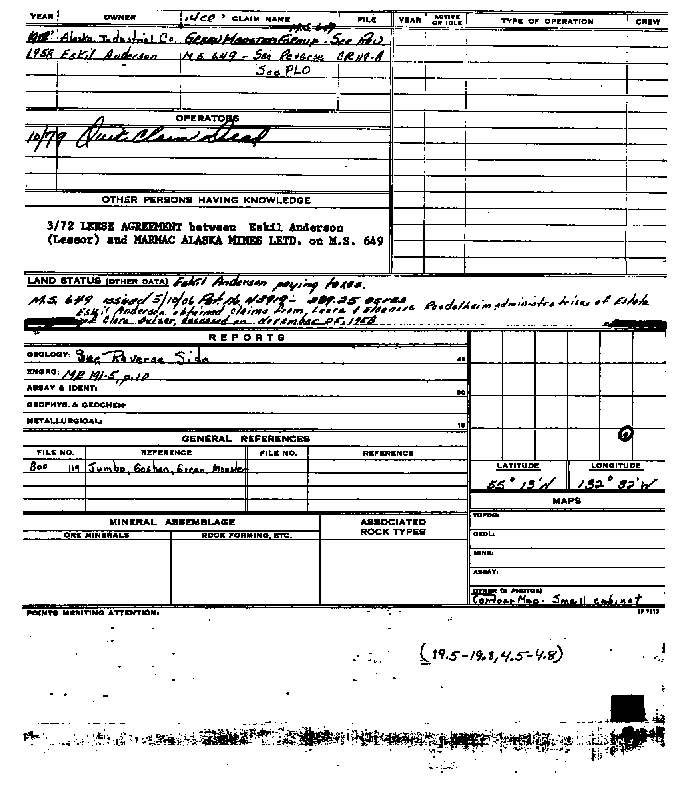 YEAR OWNER CLAIM NAME FILE YEAR ACTIVE OR IDLE TYPE OF OPERATION CREW
M.S. 649
Alaska Industrial Co. Green Monster Group - See Rev.
1958 Eskil Anderson M.S. 649 - See Reverse CR 119-A
See PLO
OPERATORS
10/79 Quit Claim Deed
OTHER PERSONS HAVING KNOWLEDGE
3/72 LEESE AGREEMENT between Eskil Anderson
(Lessor) and MARMAC ALASKA MINES LETD. on M.S. 649
LAND STATUS (OTHER DATA) Eskil Anderson paying taxes.
M.S. 649 issued 5/10/06 Pat. No. 209.25 acres
Eskil Anderson obtained claims from, Laura & Eleanora administratrixes of Estate
of Clara deceased on November 25, 1958
REPORTS
GEOLOGY: See Reverse Side
ENGRG: MR 191-5, p.10
ASSAY & IDENT:
GEOPHYS. & GEOCHEM:
METALLURGICAL:
GENERAL REFERENCES
FILE NO. REFERENCE FILE NO. REFERENCE
Boo 119 Jumbo, Goshen, Green Monster
LATITUDE LONGITUDE
55° 13'N 132° 37'W
MAPS
TOPOG:
GEOL:
MINE:
ASSAY:
OTHER (& PHOTOS)
Contour Map - Small cabinet
MINERAL ASSEMBLAGE
ORE MINERALS ROCK FORMING, ETC.
ASSOCIATED
ROCK TYPES
POINTS MERITING ATTENTION:
(19.5-19.8, 4.5-4.8)